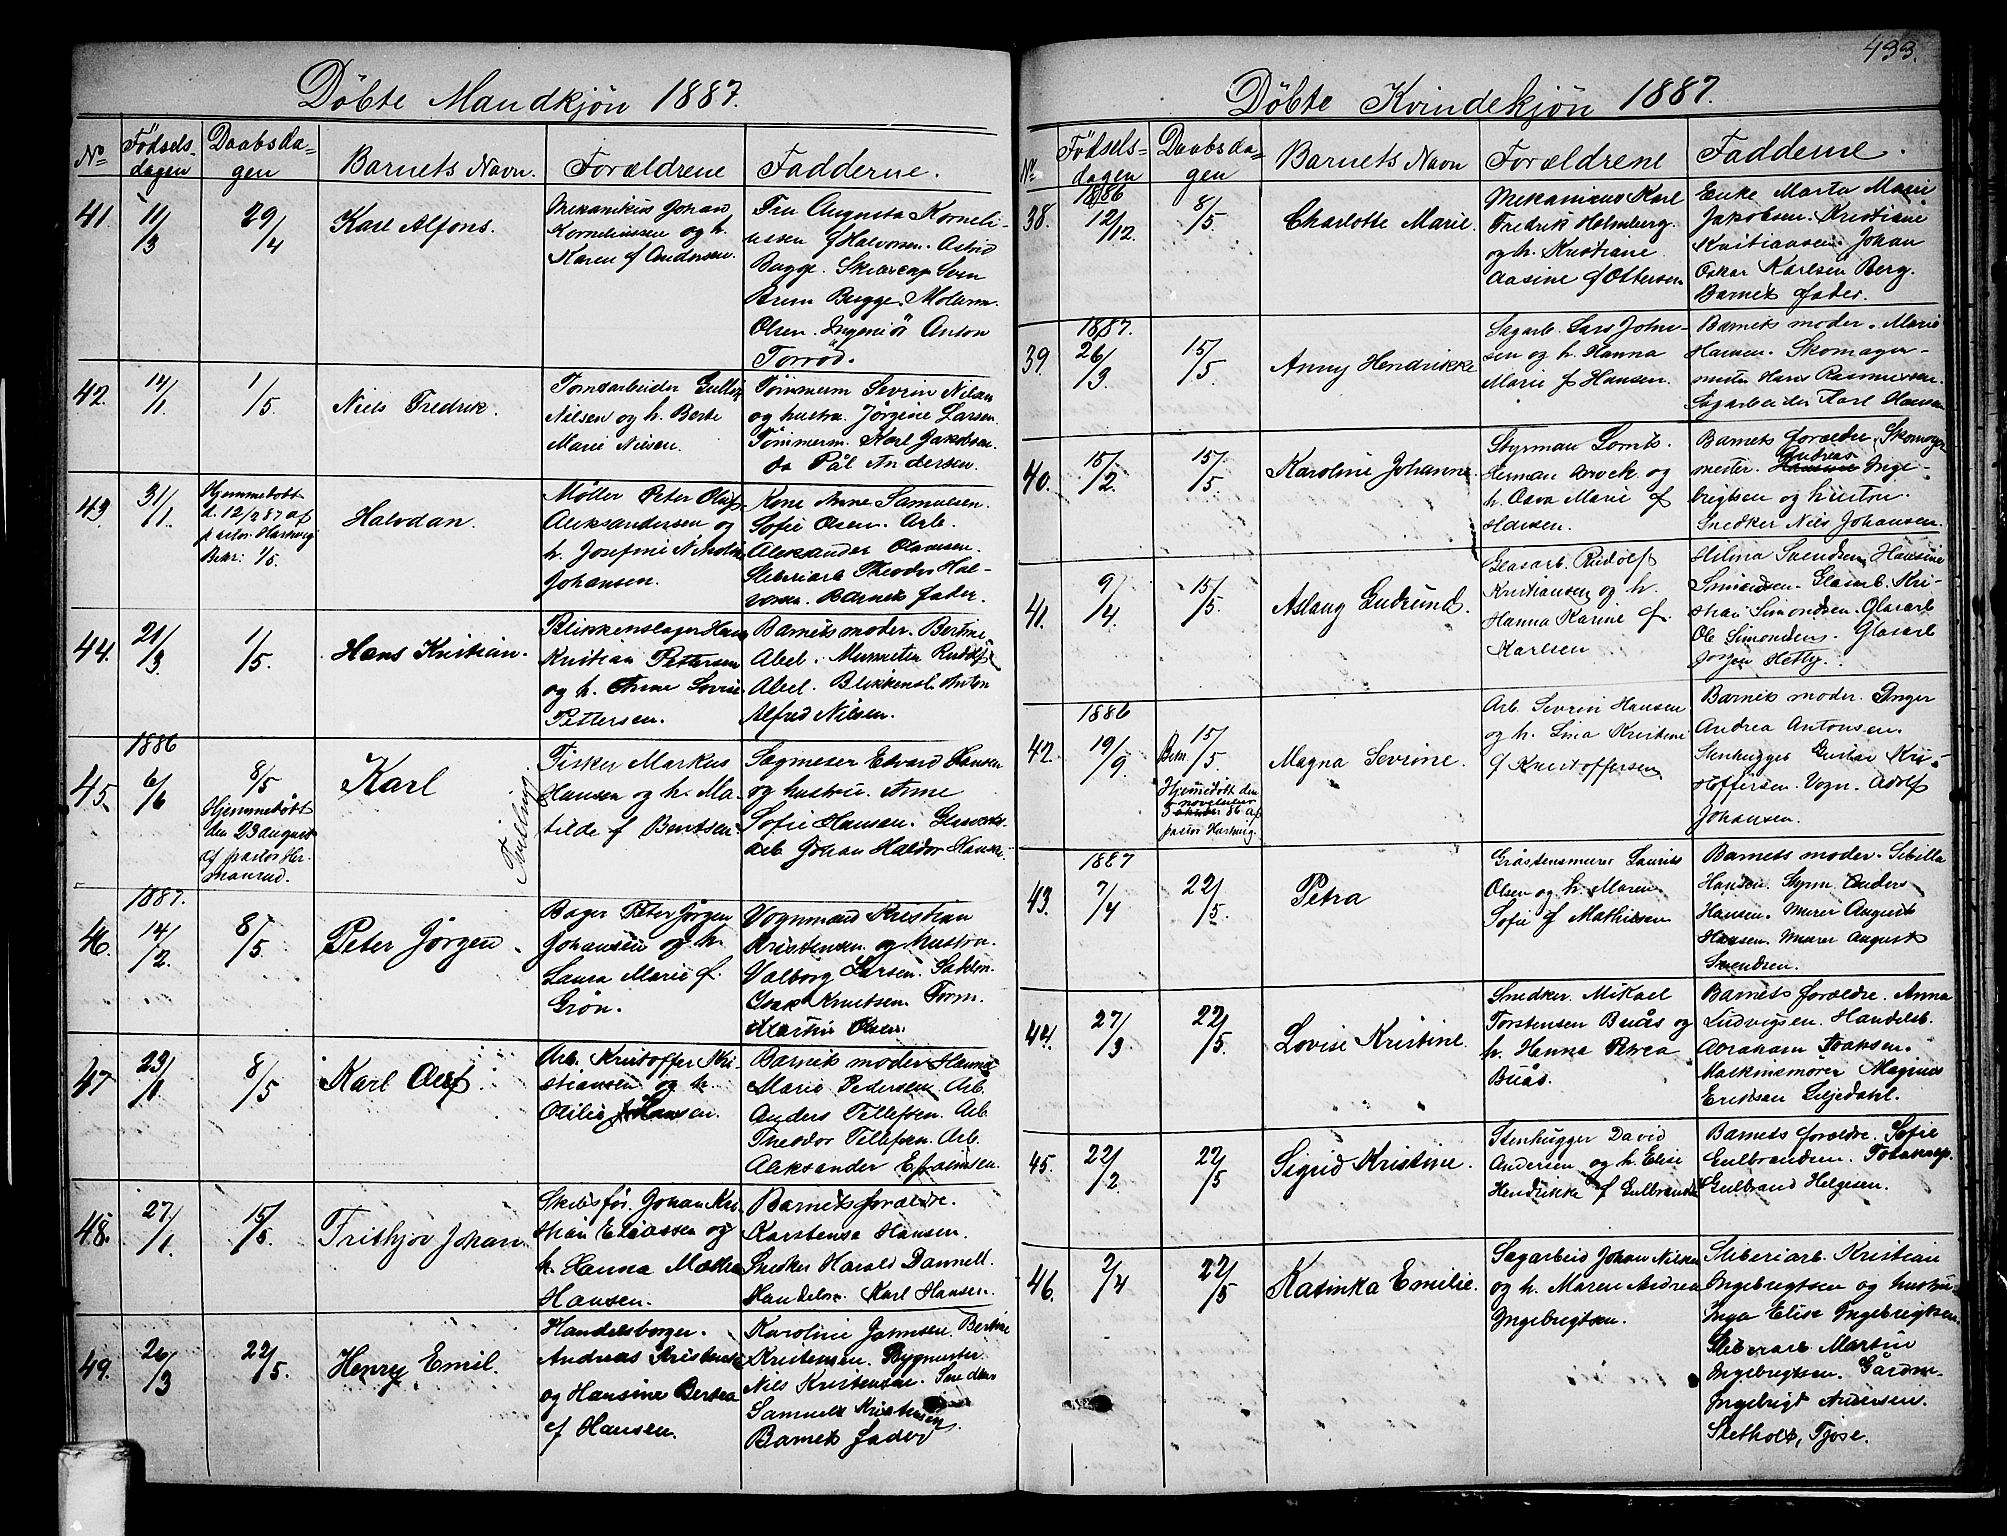 433.
Döbte Mandkjön 1887.
No Födsels- Daabsda- Barnets Navn. Forældrene Fadderne.
dagen gen
41. 11/3 29/4 Karl Alfons.
Mekanikus Johan
Korneliussen og h.
Karen f Andersen.
Fru Augusta Korneli-
ussen f Halvorsen. Astrid
Bugge. Sven
Brun Bugge.
Olsen. Ingeniör Anton
Torröd.
42. 14/1 1/5 Niels Fredrik.
Nilsen og h. Berte
Marie Nilsen.
Tömmerm Sevrin Nilsen
og hustru. Jörgine Larsen.
Tömmerm. Karl Jakobsen.
do Pål Andersen.
43. 31/1. Halvdan.
Hjemmedöbt
d. 12/2 87 af
pastor Hartvig
Bekr: 1/5.
Möller Peter Oluf
Aleksandersen og
h. Josefine
Johansen.
Kone Anne Samuelsen.
Sofie Olsen. Arb.
Aleksander Olavesen.
Sliberiarb Theodor Hal-
vorsen. Barnets fader.
44. 21/3 1/5. Hans Kristian.
Blikkenslager Hans
Kristian Pettersen
og h. Anne Lovise
Pettersen.
Barnets moder. Bertine
Abel. Murmester Rudolf
Abel. Blikkensl. Anton
Alfred Nilsen.
1886
45. 6/6 8/5 Karl
Hjemmedöbt
den 23 august
af pastor Her-
manrud.
Tvilling
Fisker Markus
Hansen og h. Ma-
tilde f Bentsen
Sagmester Edvard Hansen
og hustru. Anne
Sofie Hansen. Glasverks-
arb Johan Haldor Hansen
1887.
46. 14/2. 8/5. Peter Jörgen.
Bager Peter Jörgen
Johansen og h.
Laura Marie f.
Grön.
Vognmand Kristian
Kristensen og hustru.
Valborg Larsen. Sadelm.
Isak Knutsen. Form.
Martin Olsen.
47 23/1 8/5 Karl Oluf.
Arb. Kristoffer Kri-
stiansen og h.
Otilie f Hansen.
Barnets moder. Hanna
Marie Pedersen. Arb.
Anders Tellefsen. Arb
Theodor Tellefsen. Arb.
Aleksander Efraimsen.
48. 27/1. 15/5. Frithjov Johan.
Skibsför. Johan Kri-
stian Eliassen og
h. Hanna Mathea
Hansen.
Barnets forældre.
Karstense Hansen.
Snedker Harald Dannell.
Handelsm. Karl Hansen.
49. 26/3 22/5. Henry Emil.
Handelsborger.
Andreas Kristensen
og Hansine Bertea
f Hansen.
Karoline Johnsen. Bertine
Kristensen. Bygmester
Niels Kristensen. Snedker
Samuel Kristensen.
Barnets fader
Döbte Kvindekjön 1887.
No Födsels- Daabsda- Barnets Navn Forældrene Fadderne.
dagen gen
1886
38. 12/12. 8/5. Charlotte Marie.
Mekanicus Karl
Fredrik Holmberg.
og h. Kristiane
Aasine f Ottersen
Enke Marta Marie
Jakobsen. Kristiane
Kristiansen. Johan
Oskar Karlsen Berg.
Barnets fader.
1887.
39. 26/3 15/5. Anny Hendrikke
Sagarb. Lars John-
sen og h. Hanna
Marie f Hansen.
Barnets moder. Marie
Hansen. Skomager-
mester Hans Rasmussen.
Sagarbeider Karl Hansen
40. 15/2. 15/5. Karoline Johanne.
Styrman
Herman og
h. Marie f
Hansen.
Barnets forældre. Skomager
mester. Andreas Inge-
brigtsen og hustru.
Snedker Niels Johansen.
41. 9/4. 15/5. Aslaug Gudrund.
Glasarb. Rudolf
Kristiansen og h.
Hanna Karine f.
Karlsen
Hilma Svendsen, Hansine
Simondsen. Glasarb. Kri-
stian Simondsen. Glasarb
Ole Simondsen. Glasarb
Jörgen Hetty.
1886
42. 19/9. Bekr. 15/5 Magna Sevrine.
Hjemmedöbt den
november
86 af
pastor Hartvig.
Arb. Sevrin Hansen
og h. Lina Kristine
f Kristoffersen
Barnets moder. Inger
Andrea Antonsen.
Stenhugger Gustav Kri-
stoffersen. Vogn. Adolf
Johansen.
1887
43. 7/4 22/5. Petra
Gråstensmurer Laurits
Olsen og h. Maren
Sofie f Mathisen
Barnets moder. Sibilla
Hansen. Styrm Anders
Hansen. Murer August
Hansen. Murer August
Svendsen.
44. 27/3 22/5. Lovise Kristine.
Snedker. Mikael
Torstensen Buås og
h. Hanna Petrea
Buås.
Barnets forældre. Anna
Ludvigsen. Handelsb.
Abraham Isaksen.
Maskinemörer Magnus
Eriksen Liljedahl.
45. 22/2. 22/5 Sigrid Kristine.
Stenhugger David
Andersen og h. Elise
Hendrikke f Gulbrandsen
Barnets forældre. Sofie
Gulbrandsen.
Gulbrand Helgesen.
46. 2/4 22/5 Katinka Emilie.
Sagarbeid Johan Nilsen
og h. Maren Andrea
Ingebregtsen.
Sliberiarb. Kristian
Ingebregtsen og hustru
Inga Elise Ingebregtsen.
Sliberarb Martin
Ingebregtsen. Gårdm.
Ingebrigt Andersen.
Sletholt, Tjose.